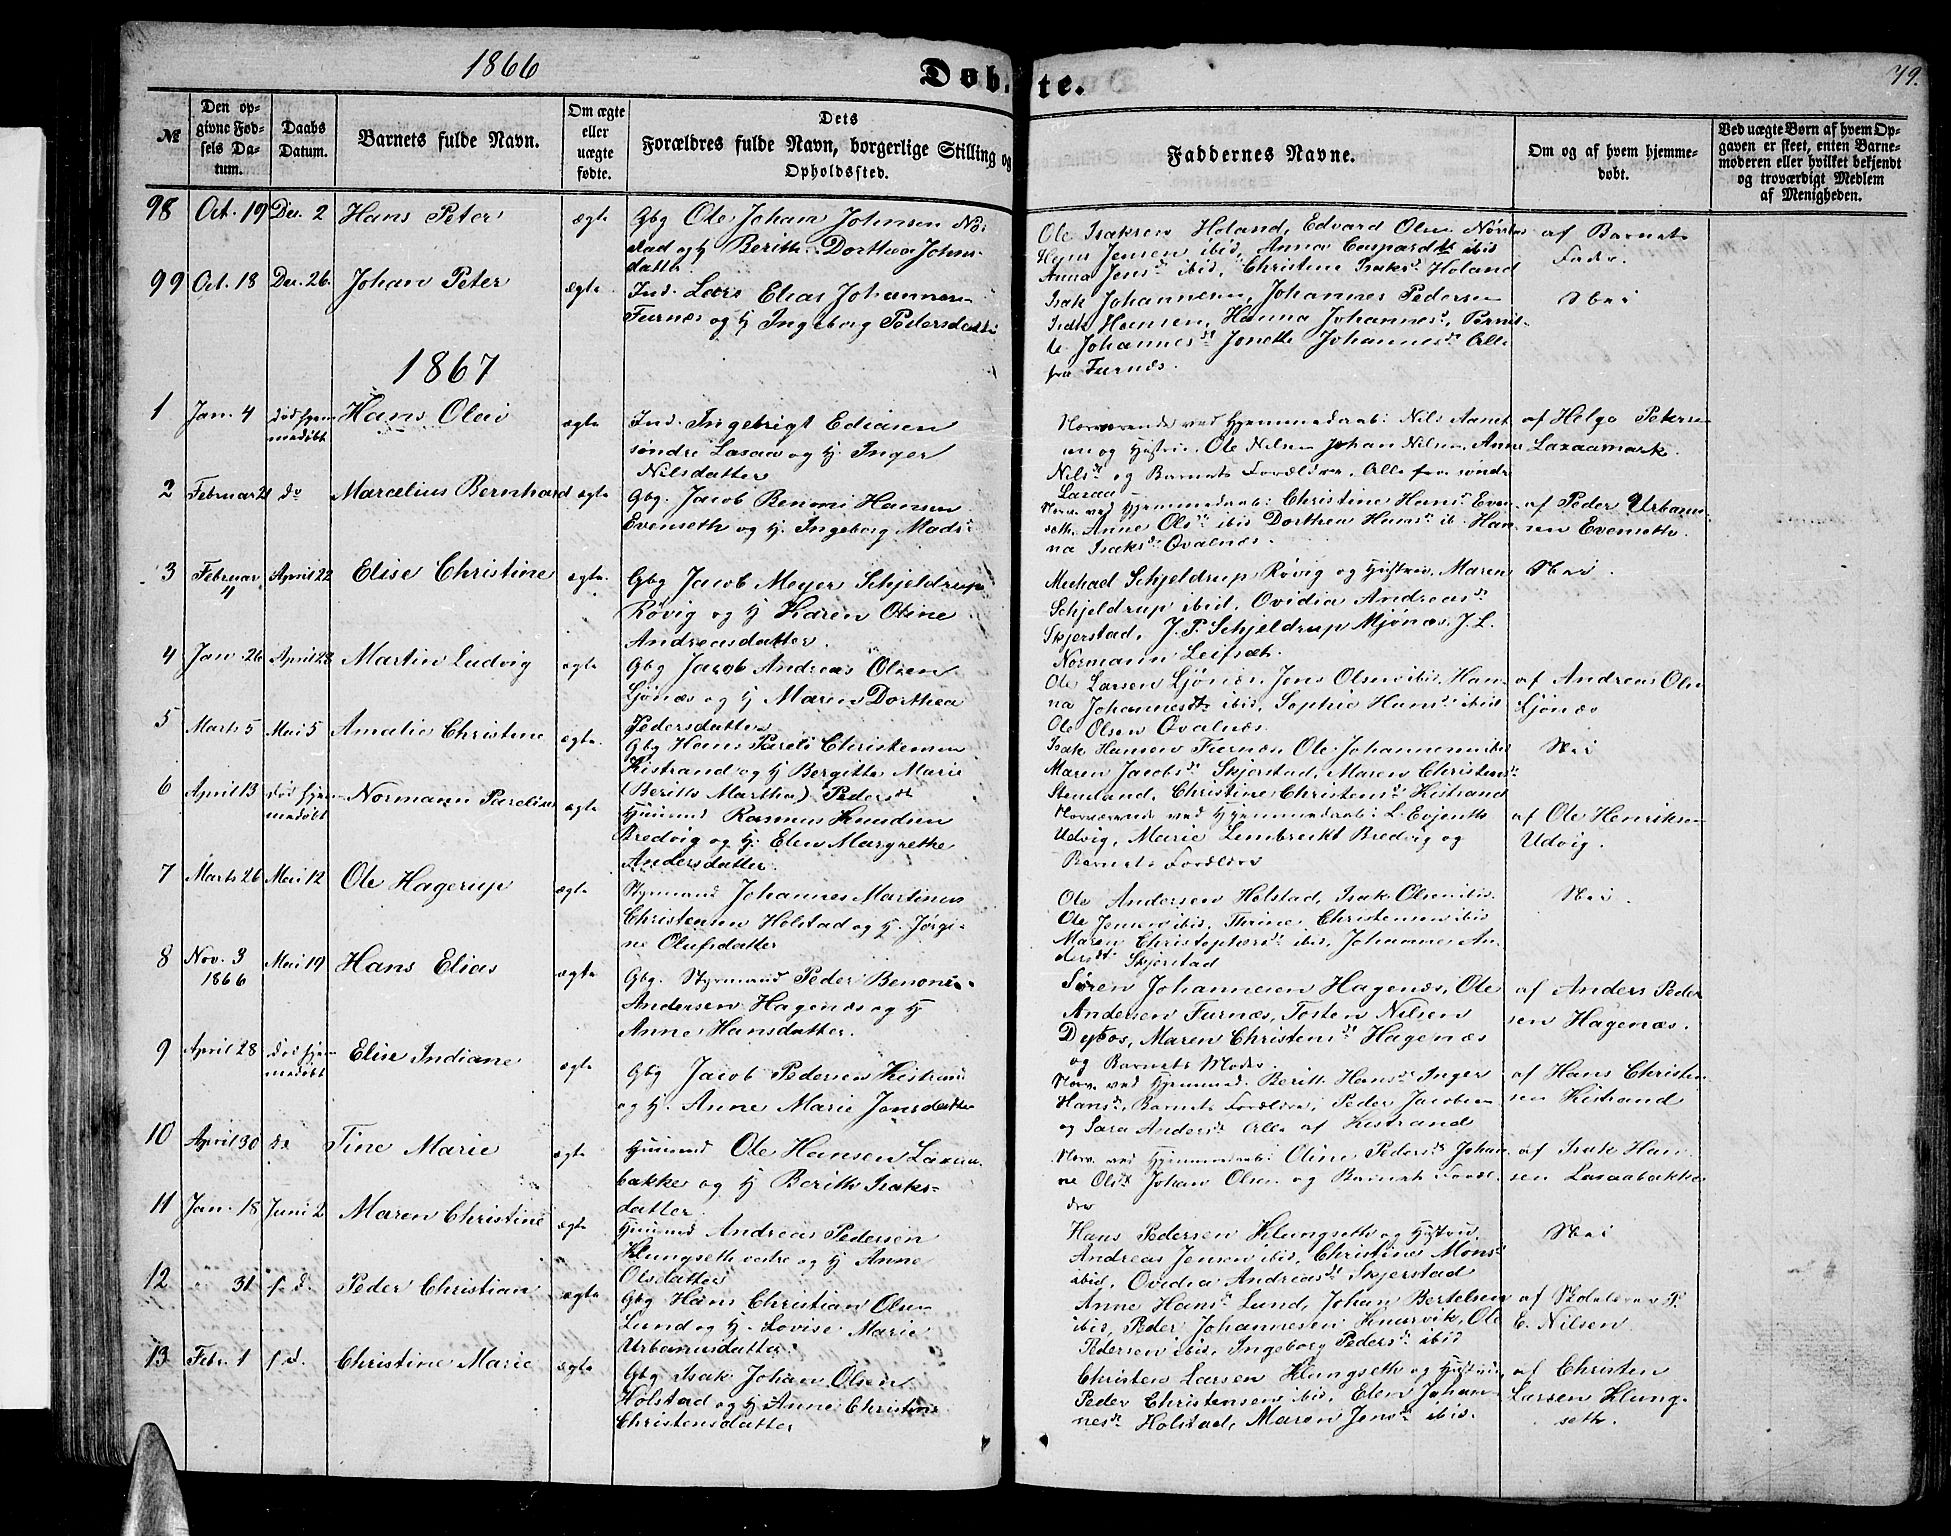 1866
Døbte.
79.
№
Den op-
givne Fød-
sels Da-
tum.
Daabs
Datum.
Barnets fulde Navn.
Om ægte
eller
uægte
fødte.
Dets
Forældres fulde Navn, borgerlige Stilling og
Opholdssted.
Faddernes Navne.
Om og af hvem hjemme-
døbt.
Ved uægte Børn af hvem Op-
gaven er skeet, enten Barne-
moderen eller hvilket bekjendt
og troværdigt Medlem
af Menigheden.
98 Oct. 19 Dec. 2 Hans Peter ægte
Gbg Ole Johan Johnsen
stad og H Berith Dorthea Johns-
datter
Ole Isaksen Holand, Edvard Olsen
Jensen ibid, Anna Caspardtr ibid
Anna Jensd ibid, Christine Isaksd Holand
af Barnets
Fader.
99 Oct. 18 Dec. 26. Johan Peter ægte
Ind. Lars Elias Johannesen
Furnæs og H Ingeborg Pedersdatter
Isak Johannesen, Johannes Pedersen
Isak Hansen, Hanna Johannesd, Pernil-
le Johannesd Jonette Johannesd Alle
fra Furnæs.
Nei
1867
1 Jan. 4 død hjem
medøbt
Hans Olai ægte
Ind. Ingebrigt Ediasen
søndre Laxaa og H. Inger
Nilsdatter
Nærværende ved Hjemmedaab: Nils
og Hustru, Ole Nilsen Johan Nilsen, Anne
Nilsd og Barnets Forældre. Alle fra søndre
Laxaa
af Helge Petersen
Laxaamark.
2 Februar 21 do Marcelius Bernhard ægte
Gbg. Jacob Benoni Hansen
Evenseth og H. Ingeborg Mads:
Nærv. ved Hjemmedaab: Christine Hansd Even-
seth. Anne Olsd ibid Dorthea Hansd ib. Han-
na Isaksd Qvalnæs.
af Peder Urbanus-
sen Evenseth.
3 Februar
4 April 22 Elise Christine ægte.
Gbg Jacob Meyer Schjeldrup
Røvig og H Karen Oline
Andreasdatter.
Michael Schjeldrup Røvig og Hustru, Maren
Schjeldrup ibid, Ovidia Andreasd
Skjerstad, J. P. Schjeldrup Mjønæs, J. L.
Normann Leifsæt.
Nei.
4 Jan. 26 April 28 Martin Ludvig ægte
Gbg Jacob Andreas Olsen
Ljønæs og H Maren Dorthea
Pedersdatter
Ole Larsen Ljønæs Jens Olsen ibid, Han-
na Johannesdtr ibid, Sophie Hansd ibid
Ole Olsen Qvalnæs
af Andreas Olsen
Ljønæs
5 Marts 5 Mai 5 Amalie Christine ægte.
Gbg Hans Pareli Christensen
Kistrand og H Bergitte Marie
(Berith Martha) Pedersd
Isak Hansen Furnæs Ole Johannesen ibid
Maren Jacobsd Skjerstad, Maren Christensd
Christine Christensd Kistrand
Nei
6 April 13 død hjem
medøbt
Normann Parelius ægte
Huusmd Rasmus Knudsen
Bredvig og H. Elen Margrethe
Andersdatter
Nærværende ved Hjemmedaab: L. Evjenth
Udvig, Marie Lembreikt Bredvig og
Barnets Forældre
af Ole Henriksen
Udvig.
7 Marts 26 Mai 12 Ole Hagerup ægte
Styrmand Johannes Martinus
Christensen Holstad og H. Jørgi-
ne Olufsdatter
Ole Andersen Holstad, Isak Olsen ibid.
Ole Jensen ibid, Thrine Christensen ibid
Maren Christophersd ibid, Johanne An-
dersdt Skjerstad
Nei.
8 Nov. 3
1866 Mai 19 Hans Elias ægte
Gbg. Styrmand Peder Benoni
Andersen Hagenæs og H
Anne Hansdatter.
Søren Johannesen Hagenæs, Ole
Andersen Furnæs, Tosten Nilsen
Maren Christensd Hagenæs
og Barnets Moder.
af Anders Peder
sen Hagenæs.
9 April 28 død hjem
medøbt
Elise Indiane ægte
Gbg Jacob Pedersen Kistrand
og H. Anne Marie Jensdatter
Nærv. ved Hjemmed. Berith Hansd Inger
Hansd, Barnets Forældre, Peder Jacobsen
og Sara Andersd Alle af Kistrand
af Hans Christen
sen Kistrand
10 April 30 do Tine Marie ægte
Huusmd Ole Hansen Laxaa-
bakke og H Berith Isaks-
datter.
Nærv. ved Hjemmedaab: Oline Pedersd Johan-
ne Olsd Johan Olsen og Barnets Foræl-
dre
af Isak Han
sen Laxaabakke
11 Jan. 18 Juni 2 Maren Christine ægte
Huusmd Andreas Pedersen
Klungseth vestre og H Anne
Olsdatter
Hans Pedersen Klungseth og Hustru
Andreas Jensen ibid, Christine Monsd
ibid, Ovidia Andreasd Skjerstad
Nei
12 " 31 s. d. Peder Christian ægte
Gbg Hans Christian Olsen
Lund og H. Lovise Marie
Urbanusdatter
Anne Hansd Lund, Johan Bertelsen
ibid, Peder Johannesen Knarvik, Ole
Pedersen ibid, Ingeborg Pedersd ibid
af Skolelærer P.
C. Nilsen
13 Febr. 1 s. d. Christine Marie ægte
Gbg Isak Johan Olsen
Holstad og H Anne Christine
Christensdatter
Christen Larsen Klungseth og Hustru
Peder Christensen ibid, Elen Johan-
nesd Holstad, Maren Jensd ibid.
af Christen
Larsen Klung-
seth.